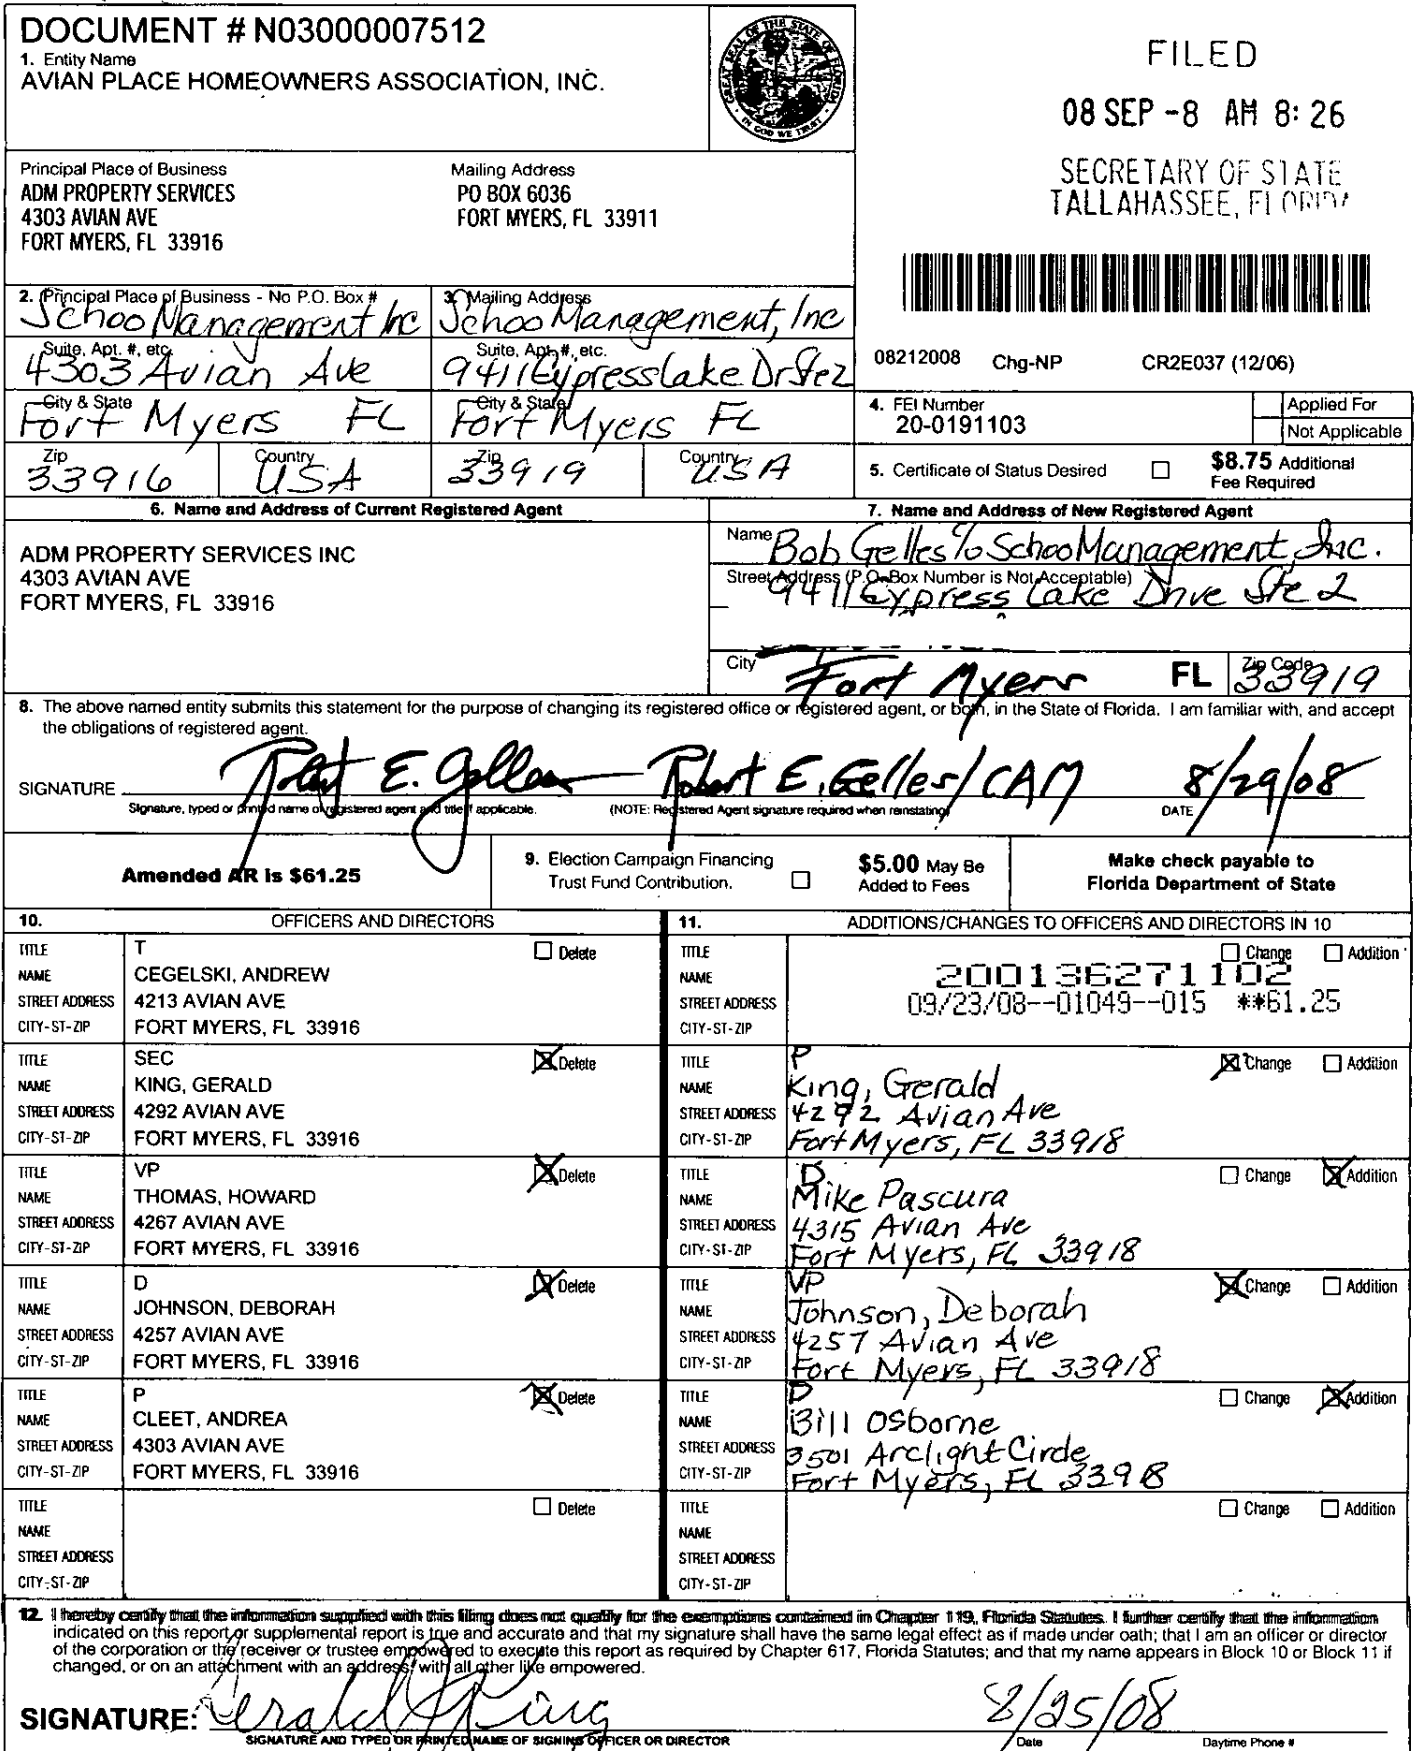 DOCUMENT # N03000007512
1. Entity Name
AVIAN PLACE HOMEOWNERS ASSOCIATION, INC.
GREAT SEAL OF THE STATE OF FLORIDA
IN GOD WE TRUST
FILED
08 SEP -8 AM 8: 26
SECRETARY OF STATE
TALLAHASSEE, FLORIDA
Principal Place of Business
ADM PROPERTY SERVICES
4303 AVIAN AVE
FORT MYERS, FL 33916
Mailing Address
PO BOX 6036
FORT MYERS, FL 33911
2. Principal Place of Business - No P.O. Box #
Schoo Management Inc
3. Mailing Address
Schoo Management, Inc
Suite, Apt. #, etc.
4303 Avian Ave
Suite, Apt. #, etc.
9411 Cypress Lake Dr Ste 2
City & State
Fort Myers FL
City & State
Fort Myers FL
Zip
33916
Country
USA
Zip
33919
Country
USA
08212008 Chg-NP CR2E037 (12/06)
4. FEI Number
20-0191103
Applied For
Not Applicable
5. Certificate of Status Desired
$8.75 Additional
Fee Required
6. Name and Address of Current Registered Agent
ADM PROPERTY SERVICES INC
4303 AVIAN AVE
FORT MYERS, FL 33916
7. Name and Address of New Registered Agent
Name Bob Gelles % Schoo Management, Inc.
Street Address (P.O. Box Number is Not Acceptable)
9411 Cypress Lake Drive Ste 2
City Fort Myers FL Zip Code 33919
8. The above named entity submits this statement for the purpose of changing its registered office or registered agent, or both, in the State of Florida. I am familiar with, and accept
the obligations of registered agent.
SIGNATURE Robert E. Gelles Robert E. Gelles/CAM 8/29/08
Signature, typed or printed name of registered agent and title if applicable. (NOTE: Registered Agent signature required when reinstating) DATE
Amended AR is $61.25
9. Election Campaign Financing
Trust Fund Contribution.
$5.00 May Be
Added to Fees
Make check payable to
Florida Department of State
10. OFFICERS AND DIRECTORS
11. ADDITIONS/CHANGES TO OFFICERS AND DIRECTORS IN 10
TITLE T Delete
NAME CEGELSKI, ANDREW
STREET ADDRESS 4213 AVIAN AVE
CITY-ST-ZIP FORT MYERS, FL 33916
TITLE Change Addition
NAME 200136271102
STREET ADDRESS 09/23/08--01049--015 **61.25
CITY-ST-ZIP
TITLE SEC Delete
NAME KING, GERALD
STREET ADDRESS 4292 AVIAN AVE
CITY-ST-ZIP FORT MYERS, FL 33916
TITLE P Change Addition
NAME King, Gerald
STREET ADDRESS 4292 Avian Ave
CITY-ST-ZIP Fort Myers, FL 33918
TITLE VP Delete
NAME THOMAS, HOWARD
STREET ADDRESS 4267 AVIAN AVE
CITY-ST-ZIP FORT MYERS, FL 33916
TITLE D Change Addition
NAME Mike Pascura
STREET ADDRESS 4315 Avian Ave
CITY-ST-ZIP Fort Myers, FL 33918
TITLE D Delete
NAME JOHNSON, DEBORAH
STREET ADDRESS 4257 AVIAN AVE
CITY-ST-ZIP FORT MYERS, FL 33916
TITLE VP Change Addition
NAME Johnson, Deborah
STREET ADDRESS 4257 Avian Ave
CITY-ST-ZIP Fort Myers, FL 33918
TITLE P Delete
NAME CLEET, ANDREA
STREET ADDRESS 4303 AVIAN AVE
CITY-ST-ZIP FORT MYERS, FL 33916
TITLE D Change Addition
NAME Bill Osborne
STREET ADDRESS 3501 Arclight Circle
CITY-ST-ZIP Fort Myers, FL 33918
TITLE Delete
NAME
STREET ADDRESS
CITY-ST-ZIP
TITLE Change Addition
NAME
STREET ADDRESS
CITY-ST-ZIP
12. I hereby certify that the information supplied with this filing does not qualify for the exemptions contained in Chapter 119, Florida Statutes. I further certify that the information
indicated on this report or supplemental report is true and accurate and that my signature shall have the same legal effect as if made under oath; that I am an officer or director
of the corporation or the receiver or trustee empowered to execute this report as required by Chapter 617, Florida Statutes; and that my name appears in Block 10 or Block 11 if
changed, or on an attachment with an address, with all other like empowered.
SIGNATURE: Gerald J King 8/25/08
SIGNATURE AND TYPED OR PRINTED NAME OF SIGNING OFFICER OR DIRECTOR Date Daytime Phone #